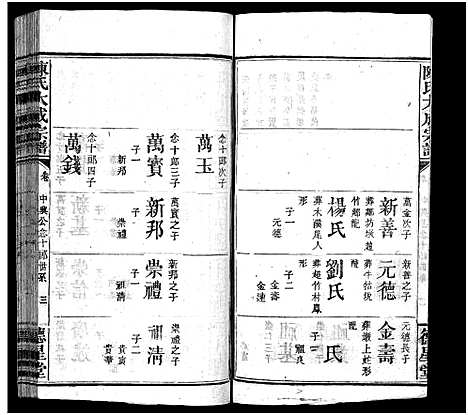 陳氏大成宗譜
萬金次子
新善
葬鄰坊塅趙
竹龍彪
楊氏
葬木溪尾人
子一
元德
新善之子
元德
葬牛牯坑
劉氏
葬超竹村鳳
子二
金連
元德長子
金壽
葬嶺上蛀形
氏
德星堂
念十郎次子
萬玉
念十郎三子
萬寶
子一
新邦
念十郎四子
萬錢
萬寶之子
新邦
子一
崇禮
新邦之子
崇禮
子一
福清
崇禮之子
福清
子二
貴寅
貴華
陳氏大成宗譜
卷
中興公念十郎世系
三
德星堂